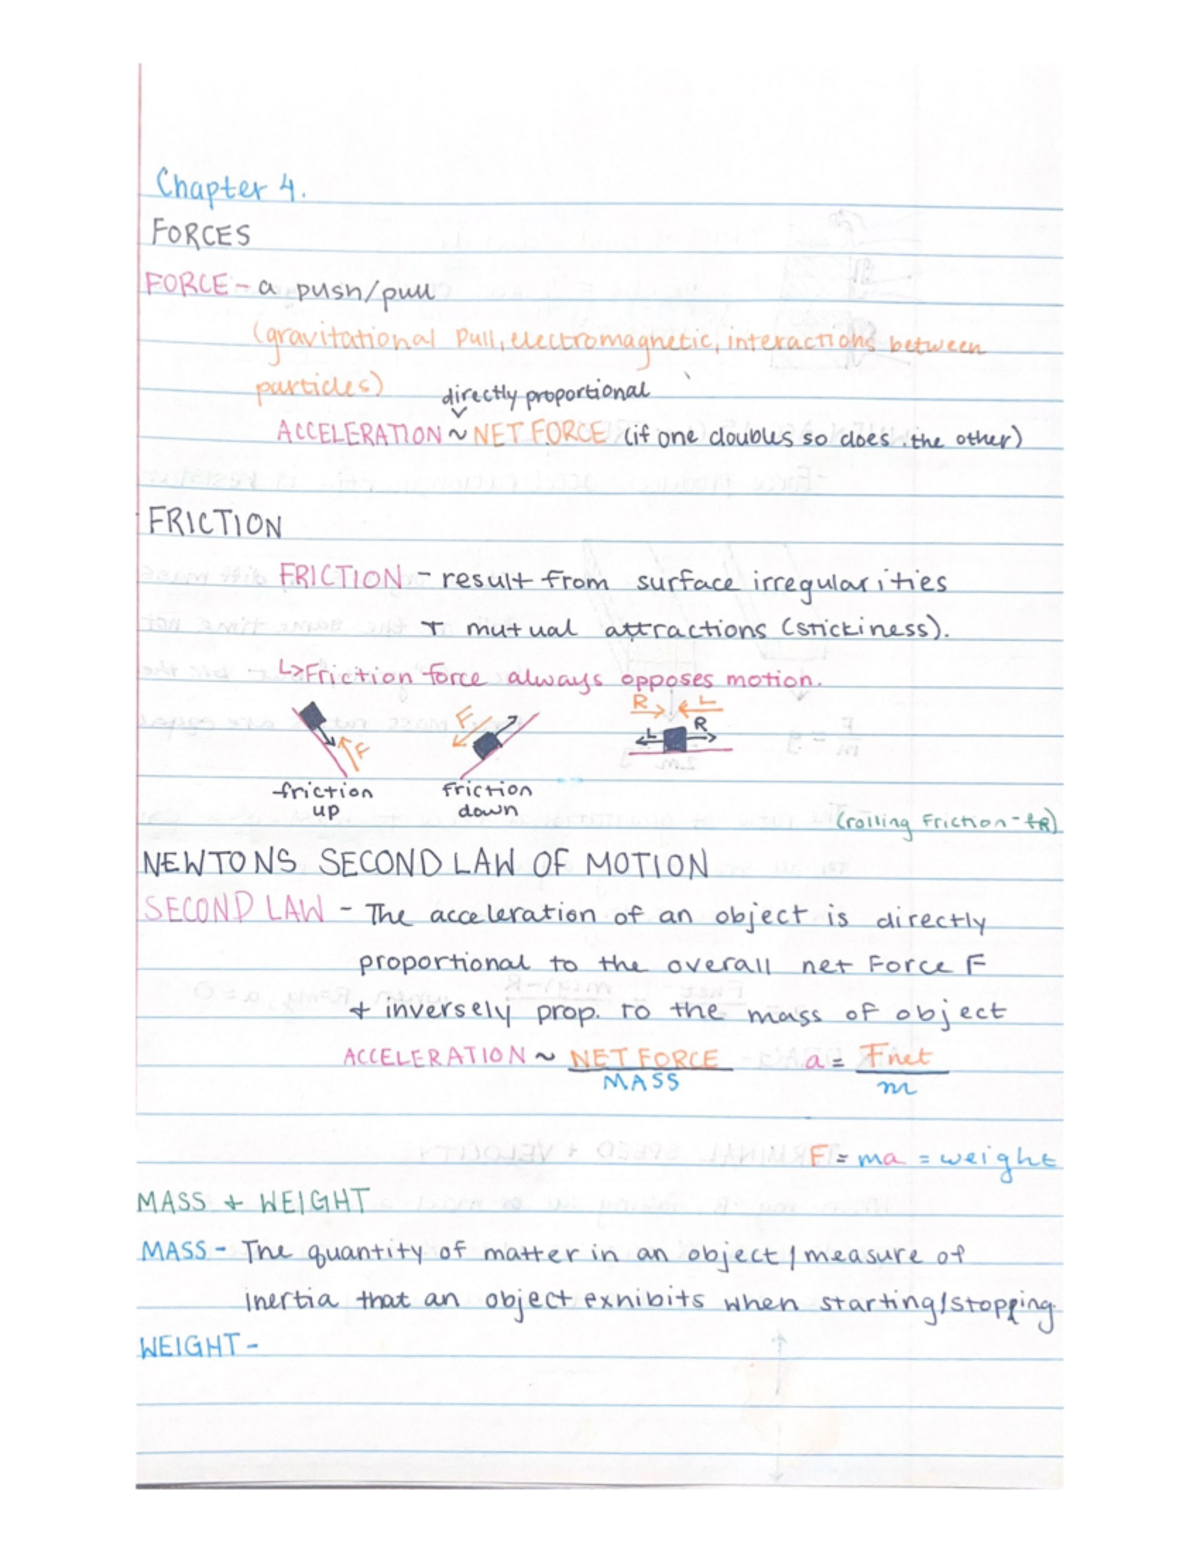 Chapter 4.
FORCES
FORCE - a push/pull
(gravitational Pull, electromagnetic, interactions between
particles)
directly proportional
ACCELERATION ~ NET FORCE (if one doubles so does the other)
FRICTION
FRICTION - result from surface irregularities
+ mutual attractions (stickiness).
↳Friction force always opposes motion.
F
F
R L
L R
friction
up
friction
down
(rolling Friction - fR)
NEWTONS SECOND LAW OF MOTION
SECOND LAW - The acceleration of an object is directly
proportional to the overall net Force F
+ inversely prop. to the mass of object
ACCELERATION ~ NET FORCE a = Fnet
MASS m
F = ma = weight
MASS + WEIGHT
MASS - The quantity of matter in an object / measure of
inertia that an object exhibits when starting/stopping.
WEIGHT -